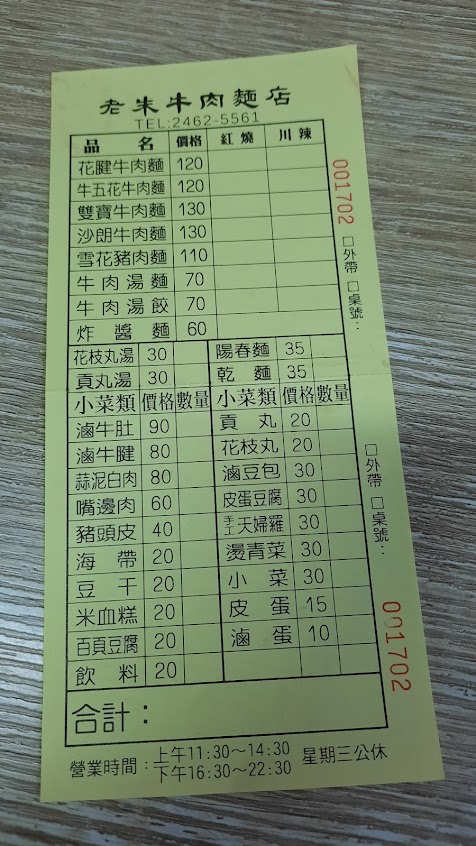 老朱牛肉麵店
TEL:2462-5561
品名 價格 紅燒 川辣
花腱牛肉麵 120
牛五花牛肉麵 120
雙寶牛肉麵 130
沙朗牛肉麵 130
雪花豬肉麵 110
牛肉湯麵 70
牛肉湯餃 70
炸醬麵 60
花枝丸湯 30 陽春麵 35
貢丸湯 30 乾麵 35
小菜類 價格 數量 小菜類 價格 數量
滷牛肚 90 貢丸 20
滷牛腱 80 花枝丸 20
蒜泥白肉 80 滷豆包 30
嘴邊肉 60 皮蛋豆腐 30
豬頭皮 40 手工天婦羅 30
海帶 20 燙青菜 30
豆干 20 小菜 30
米血糕 20 皮蛋 15
百頁豆腐 20 滷蛋 10
飲料 20
合計：
營業時間：上午11:30～14:30 星期三公休
下午16:30～22:30
001702
□外帶 □桌號：
□外帶 □桌號：
001702